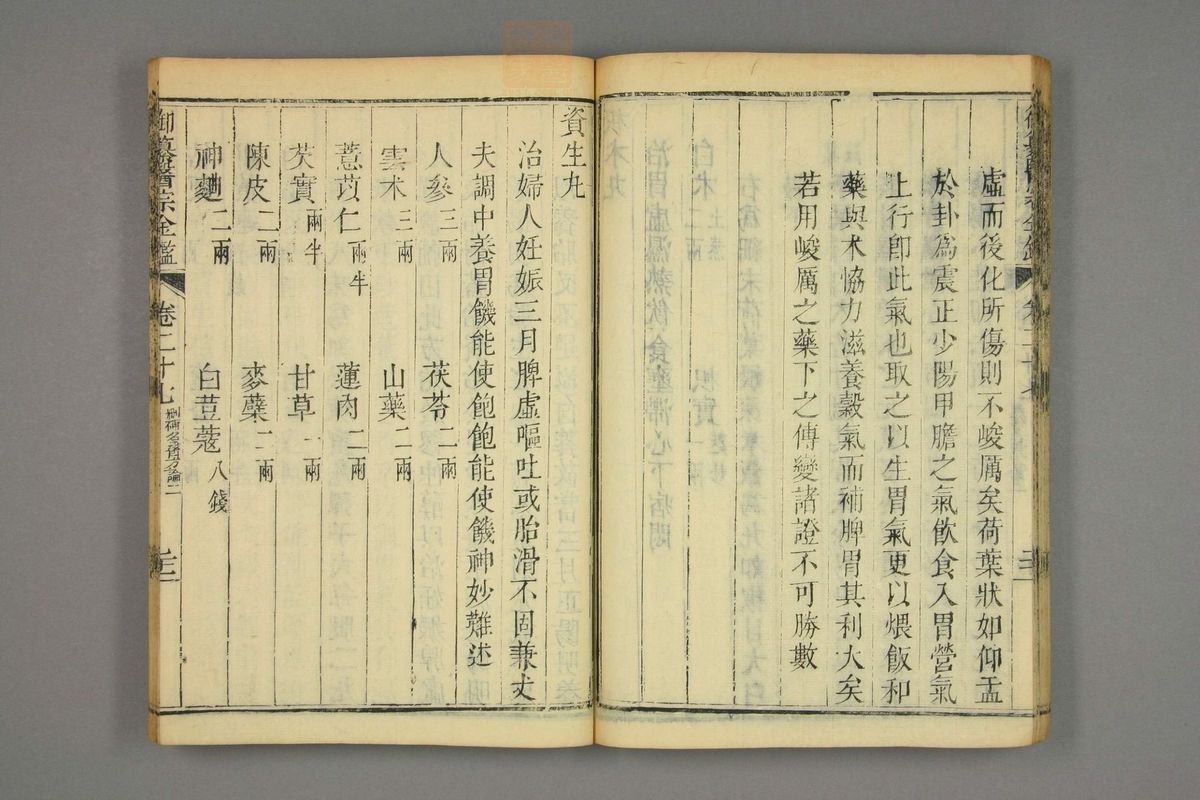 虛而後化所傷則不峻厲矣荷葉狀如仰盂
於卦為震正少陽甲膽之氣飲食入胃營氣
上行卽此氣也取之以生胃氣更以煨飯和
藥與朮恊力滋養穀氣而補脾胃其利大矣
若用峻厲之藥下之傳變諸證不可勝數
資生丸
治婦人妊娠三月脾虛嘔吐或胎滑不固兼丈
夫調中養胃饑能使飽飽能使饑神妙難述
人參三兩 茯苓二兩
雲朮三兩 山藥二兩
薏苡仁兩半 蓮肉二兩
芡實兩半 甘草一兩
陳皮二兩 麥蘖二兩
神麯二兩 白荳蔻八錢
御纂醫宗金鑑 卷二十九